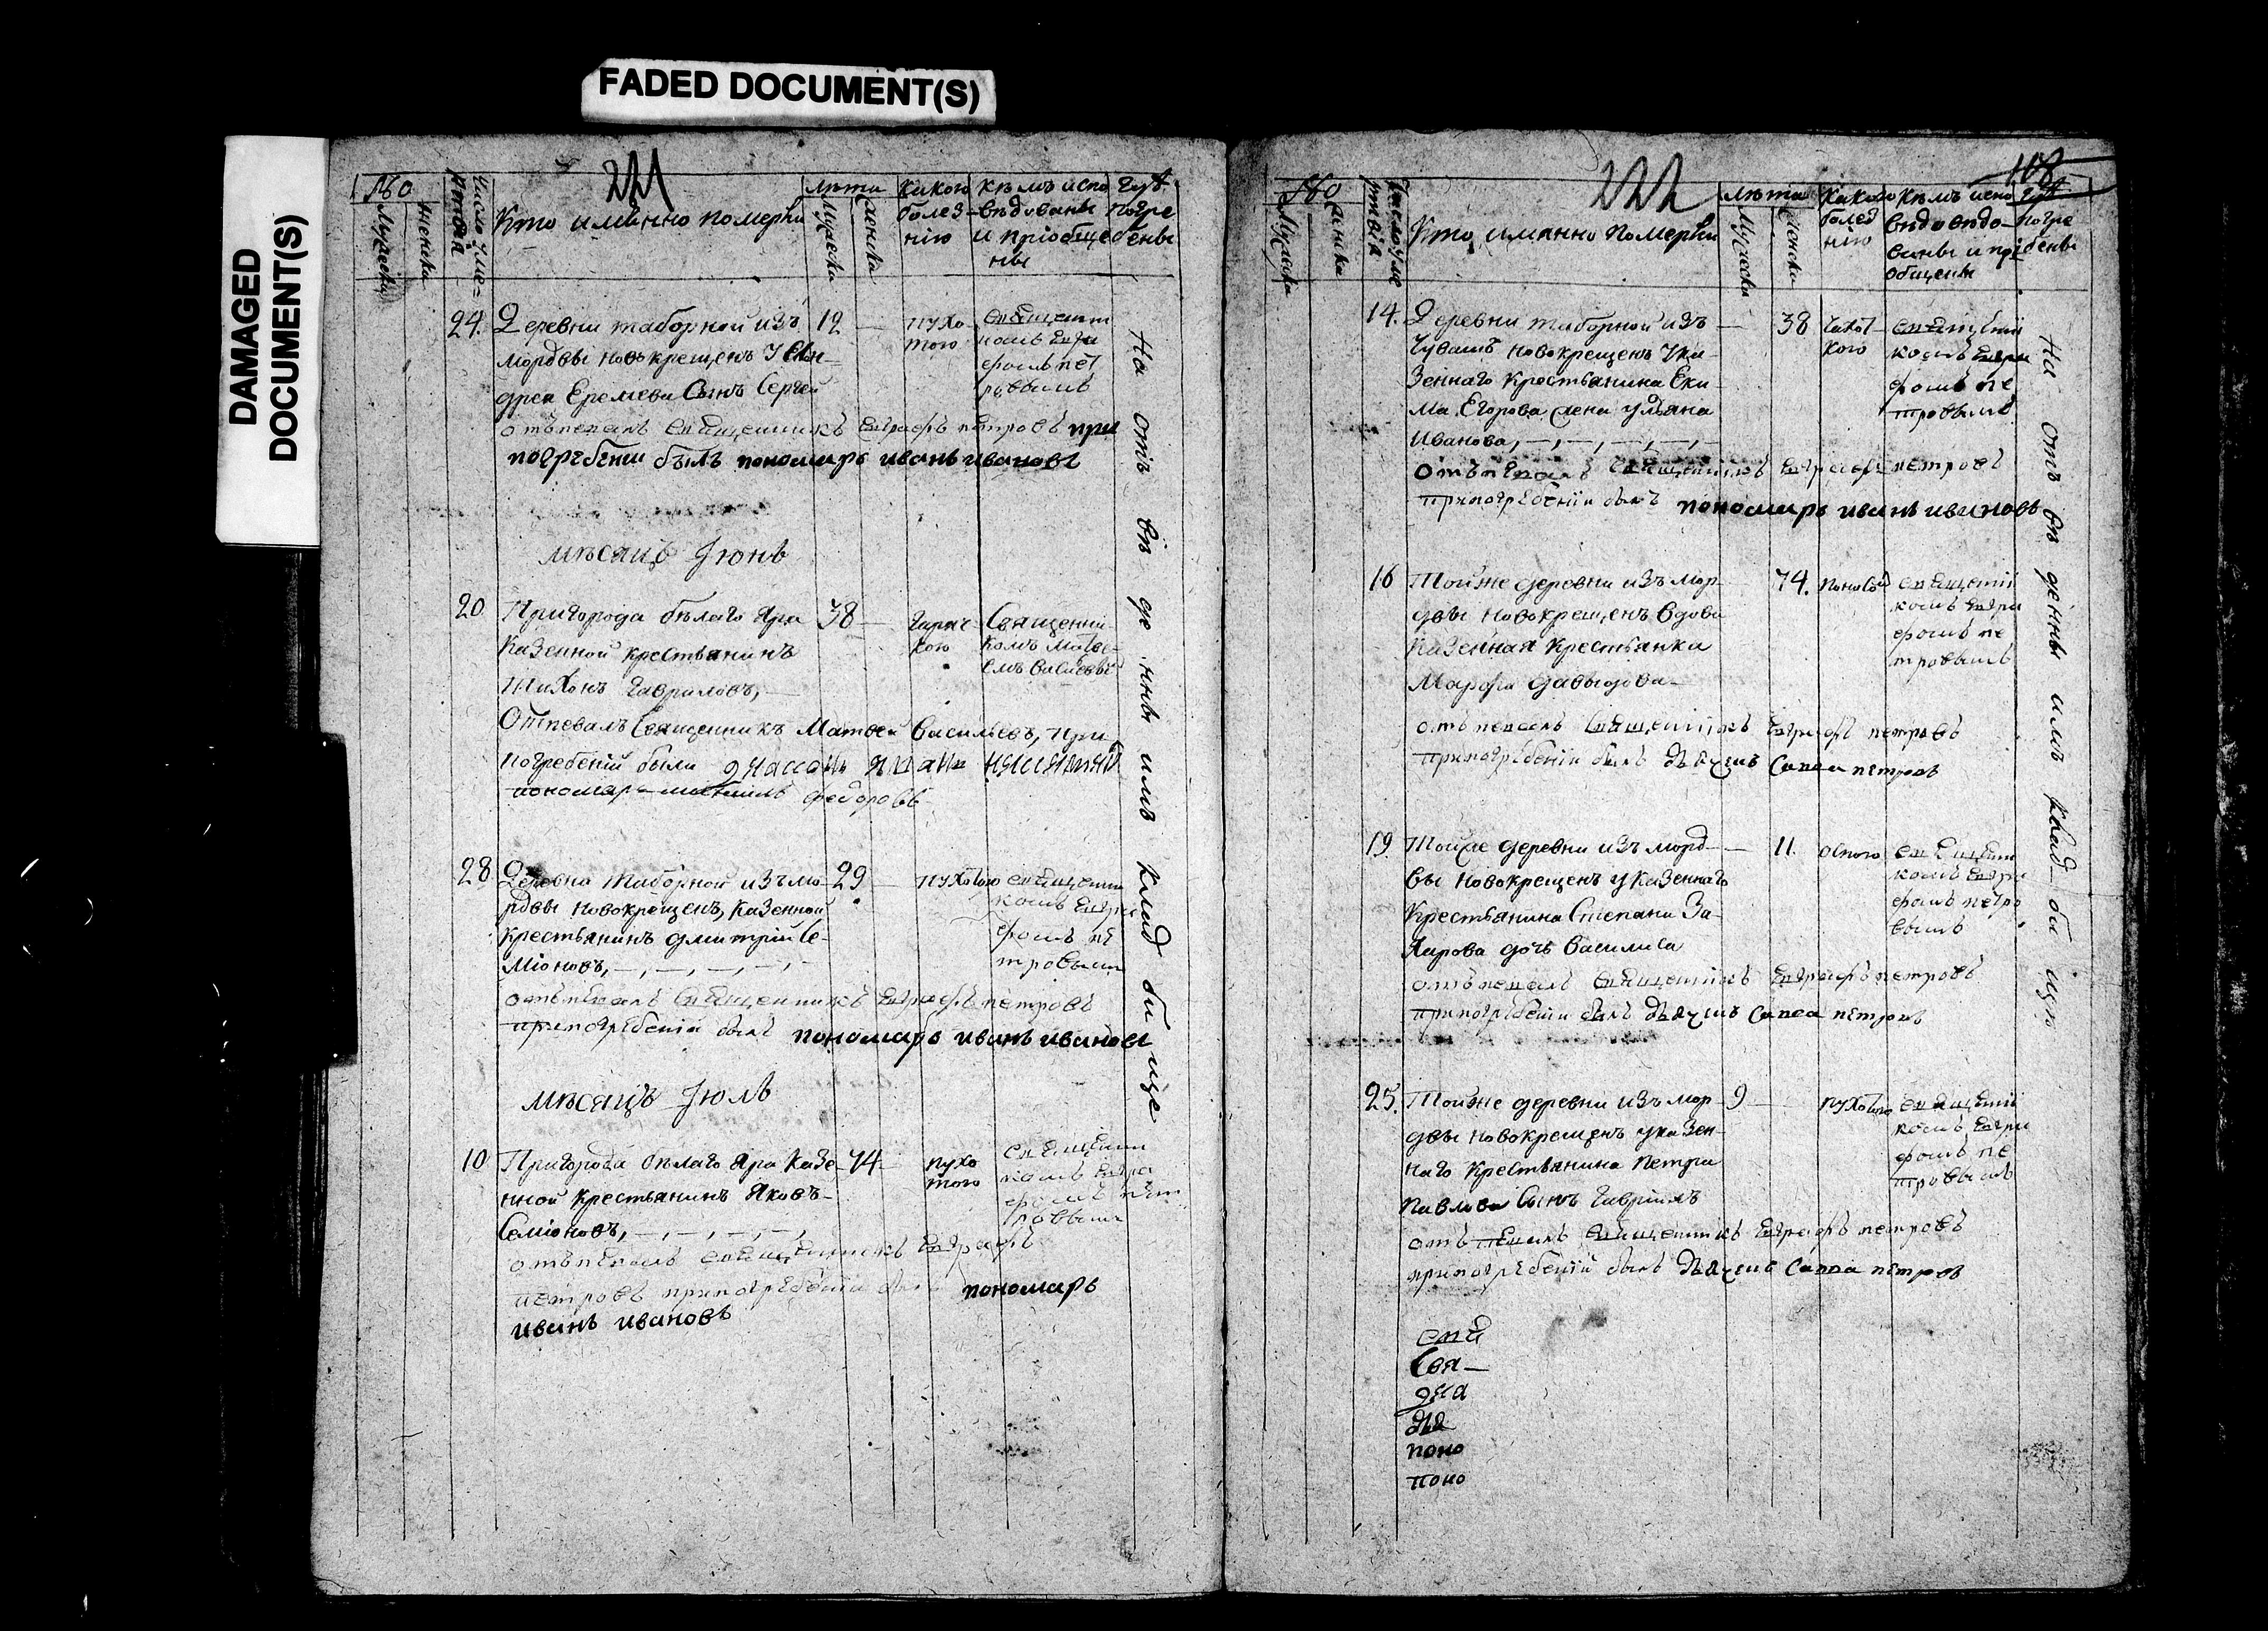 FADED DOCUMENT(S)
DAMAGED
DOCUMENT(S)
221
№о
Мужеска
женска
Число уме=
ртвія
Кто имянно померли
лѣта
Мужеска
женска
Какою
болез-
нію
Кѣмъ испо
вѣдованы
и пріобще
ны
Гдѣ
погре
бены
24.
Деревни таборной изъ
12
пухо
тою
мордвы новокрещенъ у Ан-
дрея Еремеева Сынъ Сергей
священни
комъ Евгра
фомъ пет
ровымъ
отъпевалъ священникъ Евграфъ петровъ при
погрѣбении былъ пономарь иванъ ивановъ
мѣсяцъ Іюнь
20
Пригорода бѣлаго Яра
38
Казенной крестьянинъ
Тихонъ Гавриловъ,
горяч-
кою
Священни
комъ Матве-
емъ Васильевы
Отпевалъ Священникъ Матвей Васильевъ, при
погребеній были
пономарь федоровъ
28
Деревни Таборной изъ мо-
29
рдвы новокрещенъ, казенной
крестьянинъ Дмитрій Се-
міоновъ,
пухотою
священни
комъ Евгра
фомъ пе
тровымъ
отъпевалъ священникъ Евграфъ петровъ
припогрѣбеніи былъ пономарь иванъ ивановъ
мѣсяцъ Іюль
10
Пригорода бѣлаго Яра Казе-
74
нной крестьянинъ Яковъ
Семіоновъ,
пухо
тою
священни
комъ Евгра
фомъ пет
ровымъ
отъпевалъ священникъ Евграфъ
петровъ припогрѣбеніи былъ пономарь
иванъ ивановъ
На отъ ве де нны имъ клад би ще
222
108
№о
Мужеска
женска
Число уме
ртвія
Кто имянно померли
лѣта
Мужеска
женска
Какою
болез
нію
Кѣмъ испо
вѣдо
ваны и прі
общены
Гдѣ
погре
бены
14.
Деревни таборной изъ
38
чувашъ новокрещенъ у ка-
зеннаго крестьянина Еки
ма Егорова жена ульяна
Иванова,
чахот-
кою
священни
комъ Евгра
фомъ пе
тровымъ
отъпевалъ священникъ Евграфъ петровъ
припогрѣбеніи былъ пономарь иванъ ивановъ
16
Той же деревни изъ мор-
74.
двы новокрещенъ вдова
казенная крестьянка
Марфа давыдова
поносом
священни
комъ Евгра
фомъ пе
тровымъ
отъпевалъ священникъ Евграфъ петровъ
припогрѣбеніи былъ дьячекъ Савва петровъ
19
Той же деревни изъ морд-
11.
вы новокрещенъ у казеннаго
крестьянина Степана За-
харова дочь Василиса
оспою
священни
комъ Евгра
фомъ петро
вымъ
отъпевалъ священникъ Евграфъ петровъ
припогрѣбеніи былъ дьячекъ Савва петровъ
25.
Той же деревни изъ мор-
9
двы новокрещенъ у казен-
наго крестьянина Петра
Павлова Сынъ Гаврилъ
пухотою
священни
комъ Евгра
фомъ пе
тровымъ
отъпевалъ священникъ Евграфъ петровъ
припогрѣбеніи былъ дьячекъ Савва петровъ
На отъ ве денны имъ клад би щѣ
свя
Свя-
дья
поно
поно